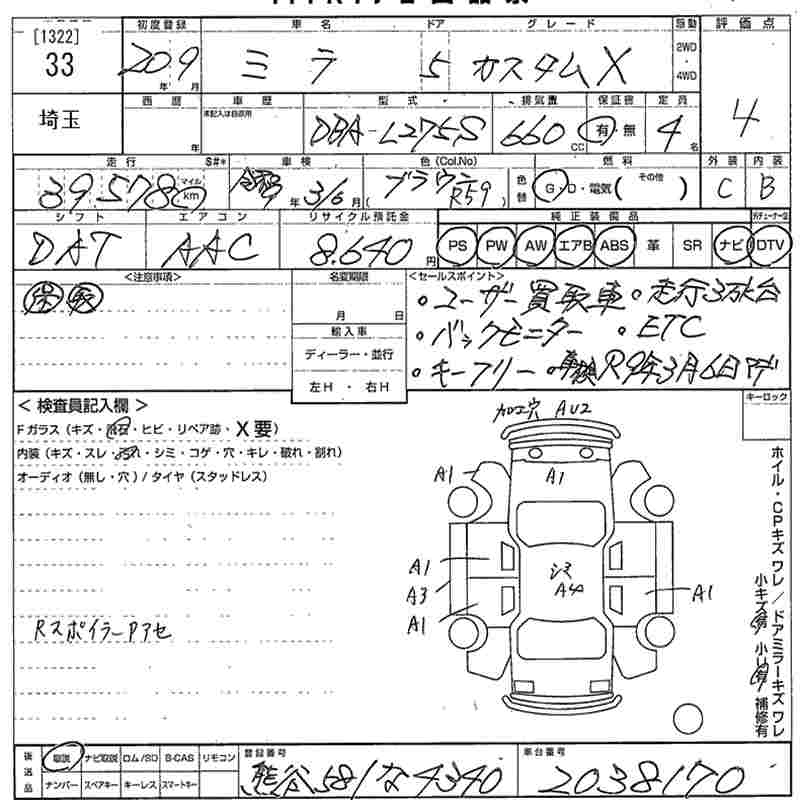 [1322]
33
埼玉
初度登録 車名 ドア グレード 駆動 評価点
20 9 ミラ 5 カスタムX 2WD・4WD 4
年 月
西暦 車歴 型式 排気量 保証書 定員
本記入は自家用
年 DBA-L275S 660 cc 有・無 4名
走行 S#* 車検 色(Col.No) 燃料 外装 内装
39,578 マイル km 令和 年 3/6 月 ブラウン R59 色替 G・D・電気( その他 ) C B
シフト エアコン リサイクル預託金 純正装備品
DAT AAC 8,640円 PS PW AW エアB ABS 革 SR ナビ DTV
<注意事項>
保 取
名変期限
月 日
輸入車
ディーラー・並行
左H ・ 右H
<セールスポイント>
・ユーザー買取車・走行3万k台
・バックモニター ・ETC
・キーフリー ・車検R9年3月6日マデ
キーロック
<検査員記入欄>
Fガラス(キズ・飛石・ヒビ・リペア跡・X要)
内装(キズ・スレ・汚れ・シミ・コゲ・穴・キレ・破れ・割れ)
オーディオ(無し・穴)/タイヤ(スタッドレス)
Rスポイラー Pアセ
加工穴 AU2
A1
A1
A1
A3
A1
シミ
A4
A1
ホイル・CPキズ ワレ/ドアミラーキズ ワレ
小キズ有 小凹有 補修有
後送品
取説 ナビ取説 ロム/SD B-CAS リモコン
ナンバー スペアキー キーレス スマートキー
登録番号
熊谷581な4340
車台番号
2038170